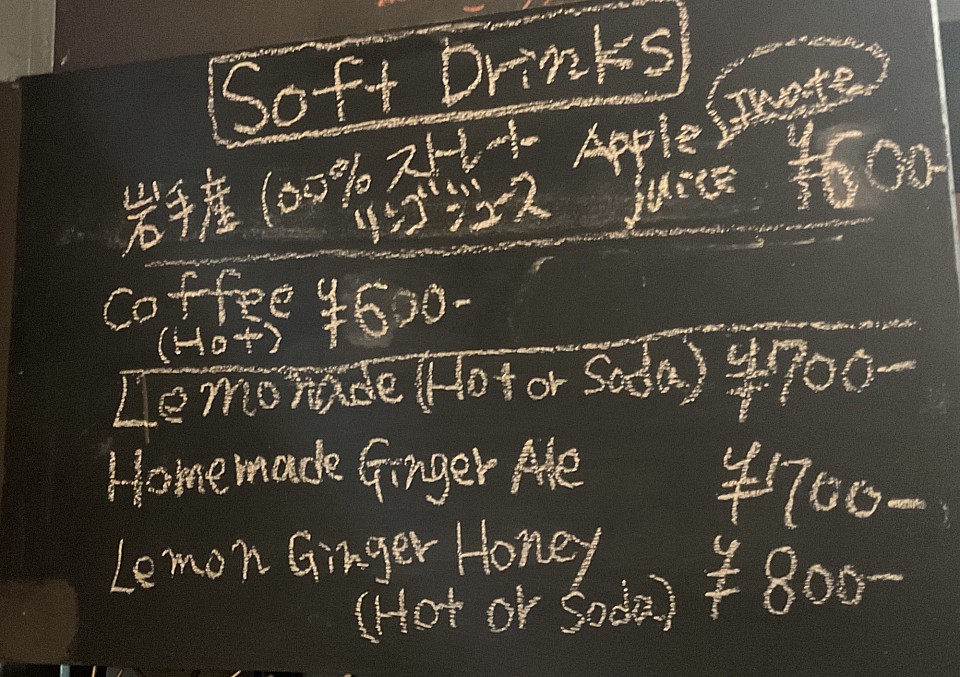 Soft Drinks
岩手産 100% ストレート リンゴジュース Apple Juice Iwate ¥600-
Coffee ¥600-
(Hot)
Lemonade (Hot or Soda) ¥700-
Homemade Ginger Ale ¥700-
Lemon Ginger Honey ¥800-
(Hot or Soda)